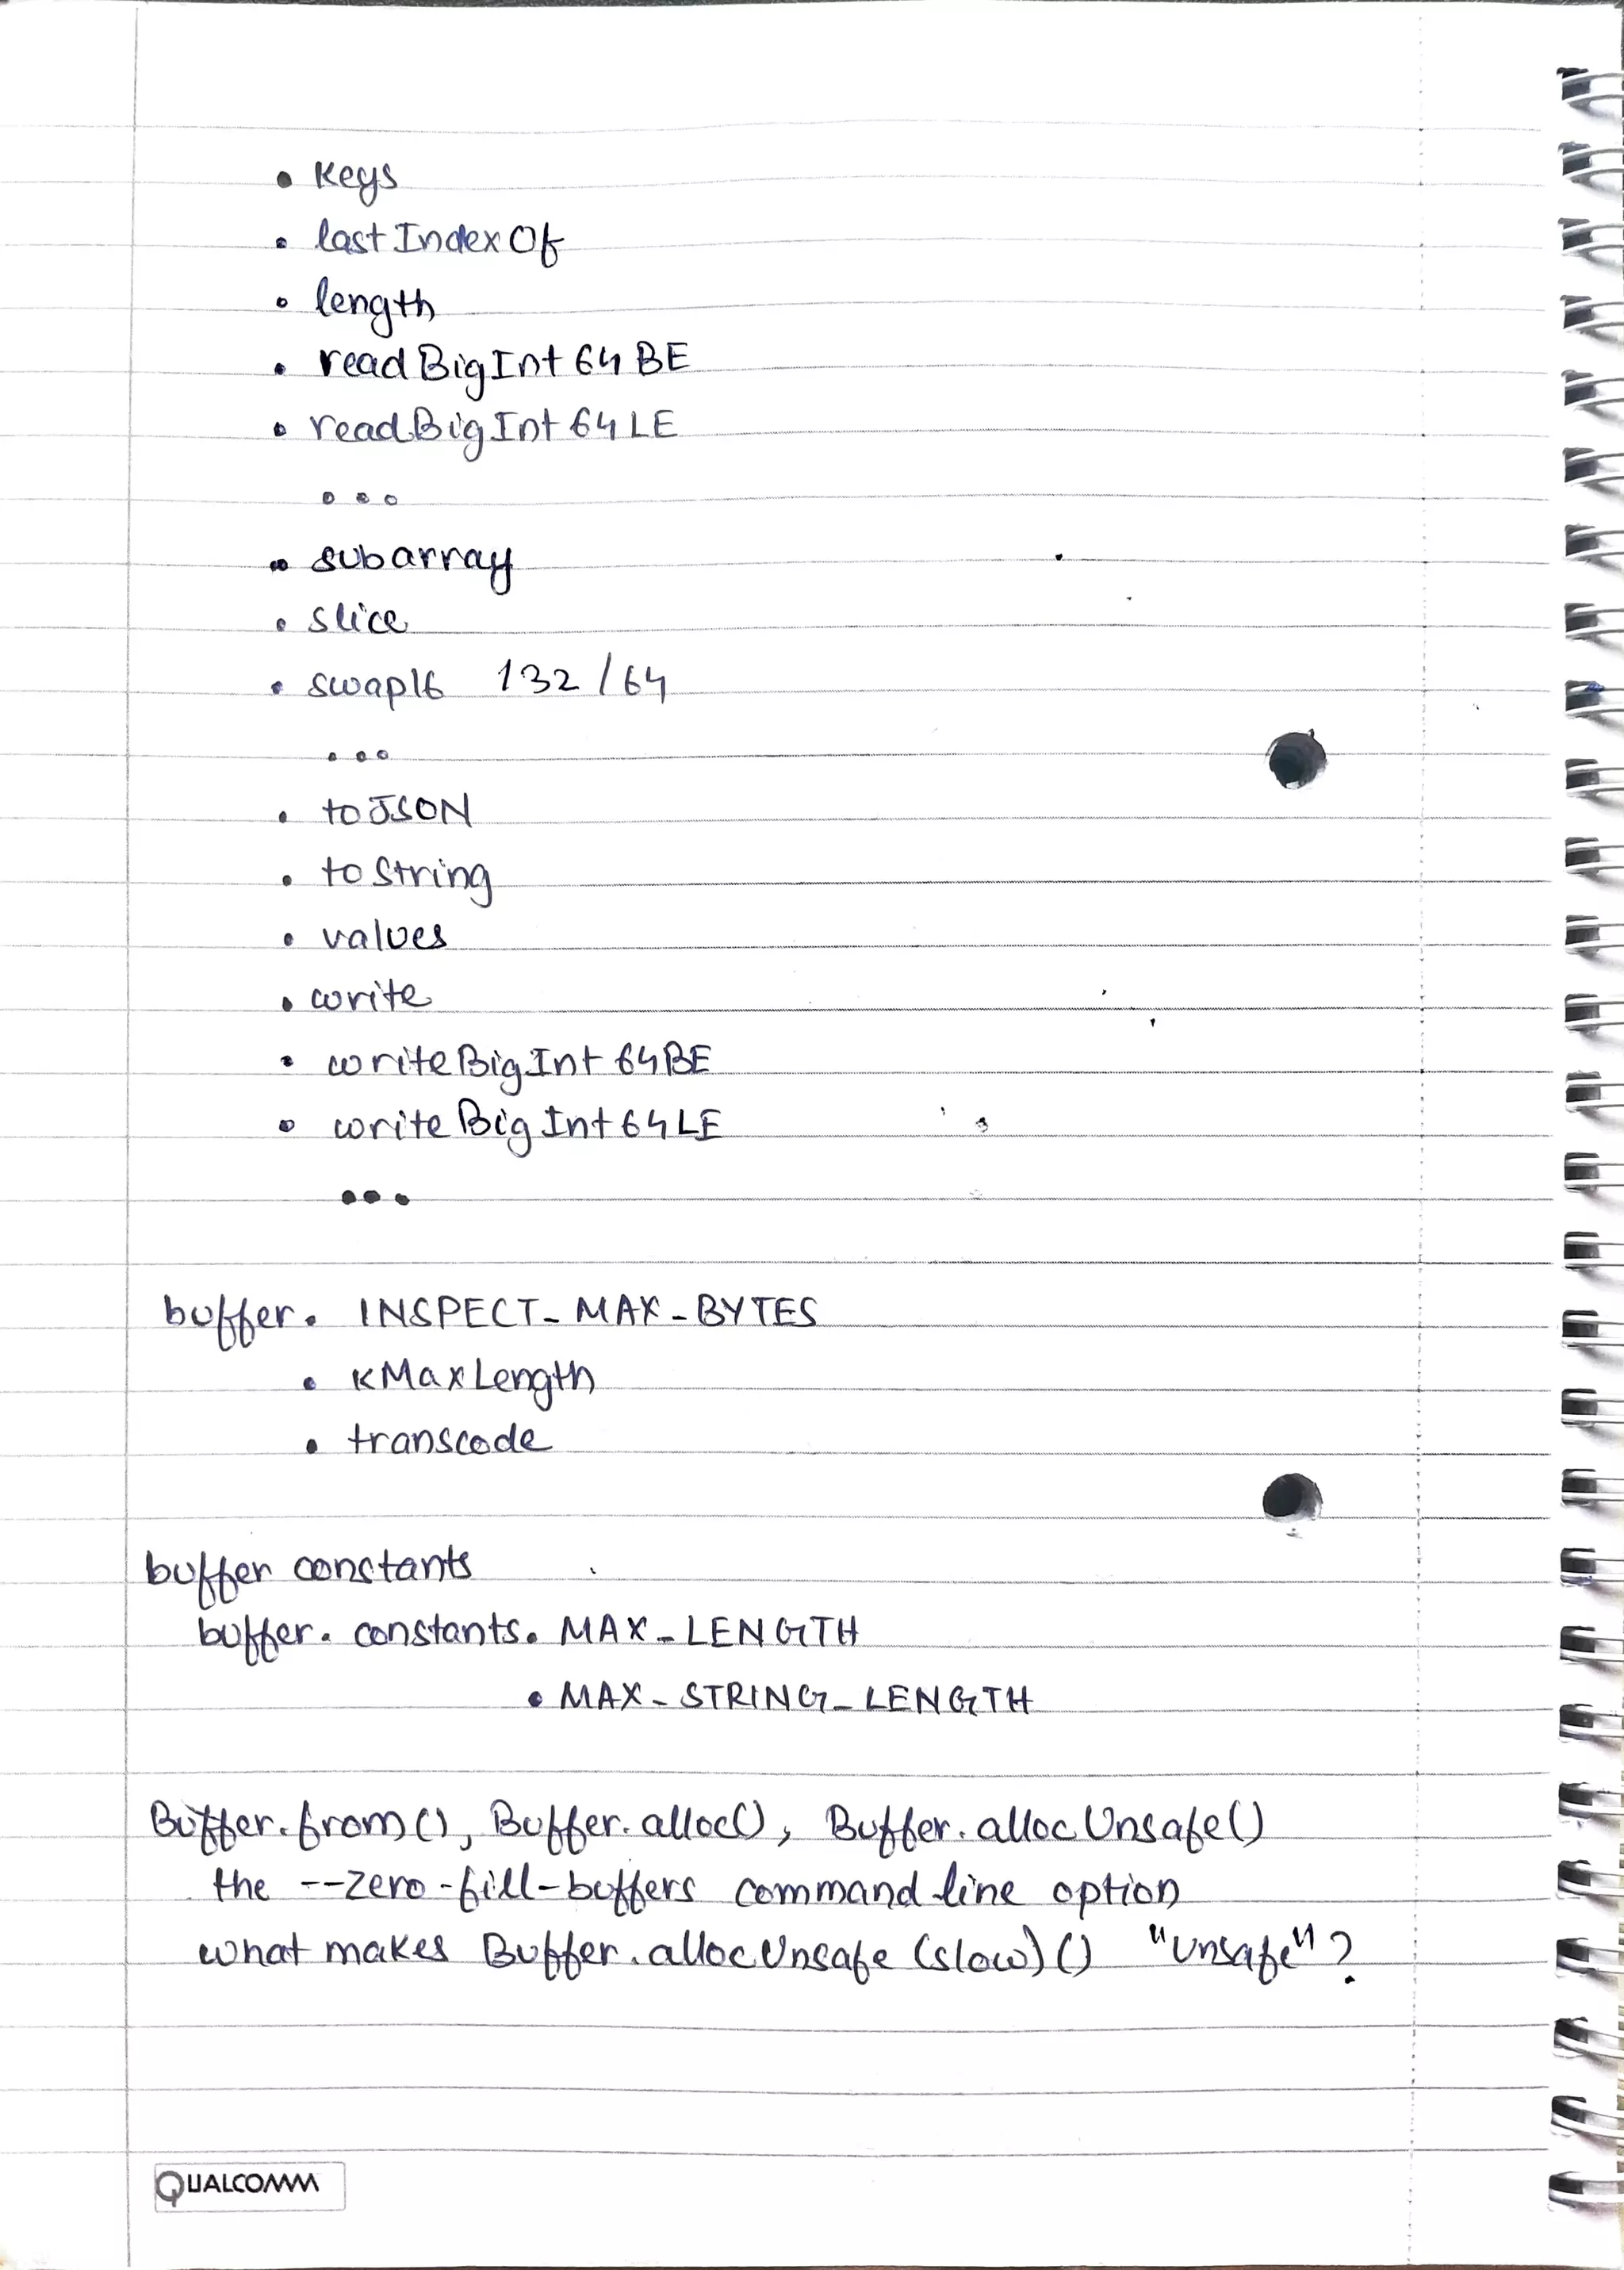 • Keys
• lastIndexOf
• length
• readBigInt64BE
• readBigInt64LE
...
• subarray
• slice
• swap16 132/64
...
• toJSON
• toString
• values
• write
• writeBigInt64BE
• writeBigInt64LE
...
buffer. INSPECT_MAX_BYTES
• kMaxLength
• transcode
buffer constants
buffer. constants. MAX_LENGTH
• MAX_STRING_LENGTH
Buffer.from(), Buffer.alloc(), Buffer.allocUnsafe()
the --zero-fill-buffers command line option
what makes Buffer.allocUnsafe(slow)() "unsafe"?
QUALCOMM